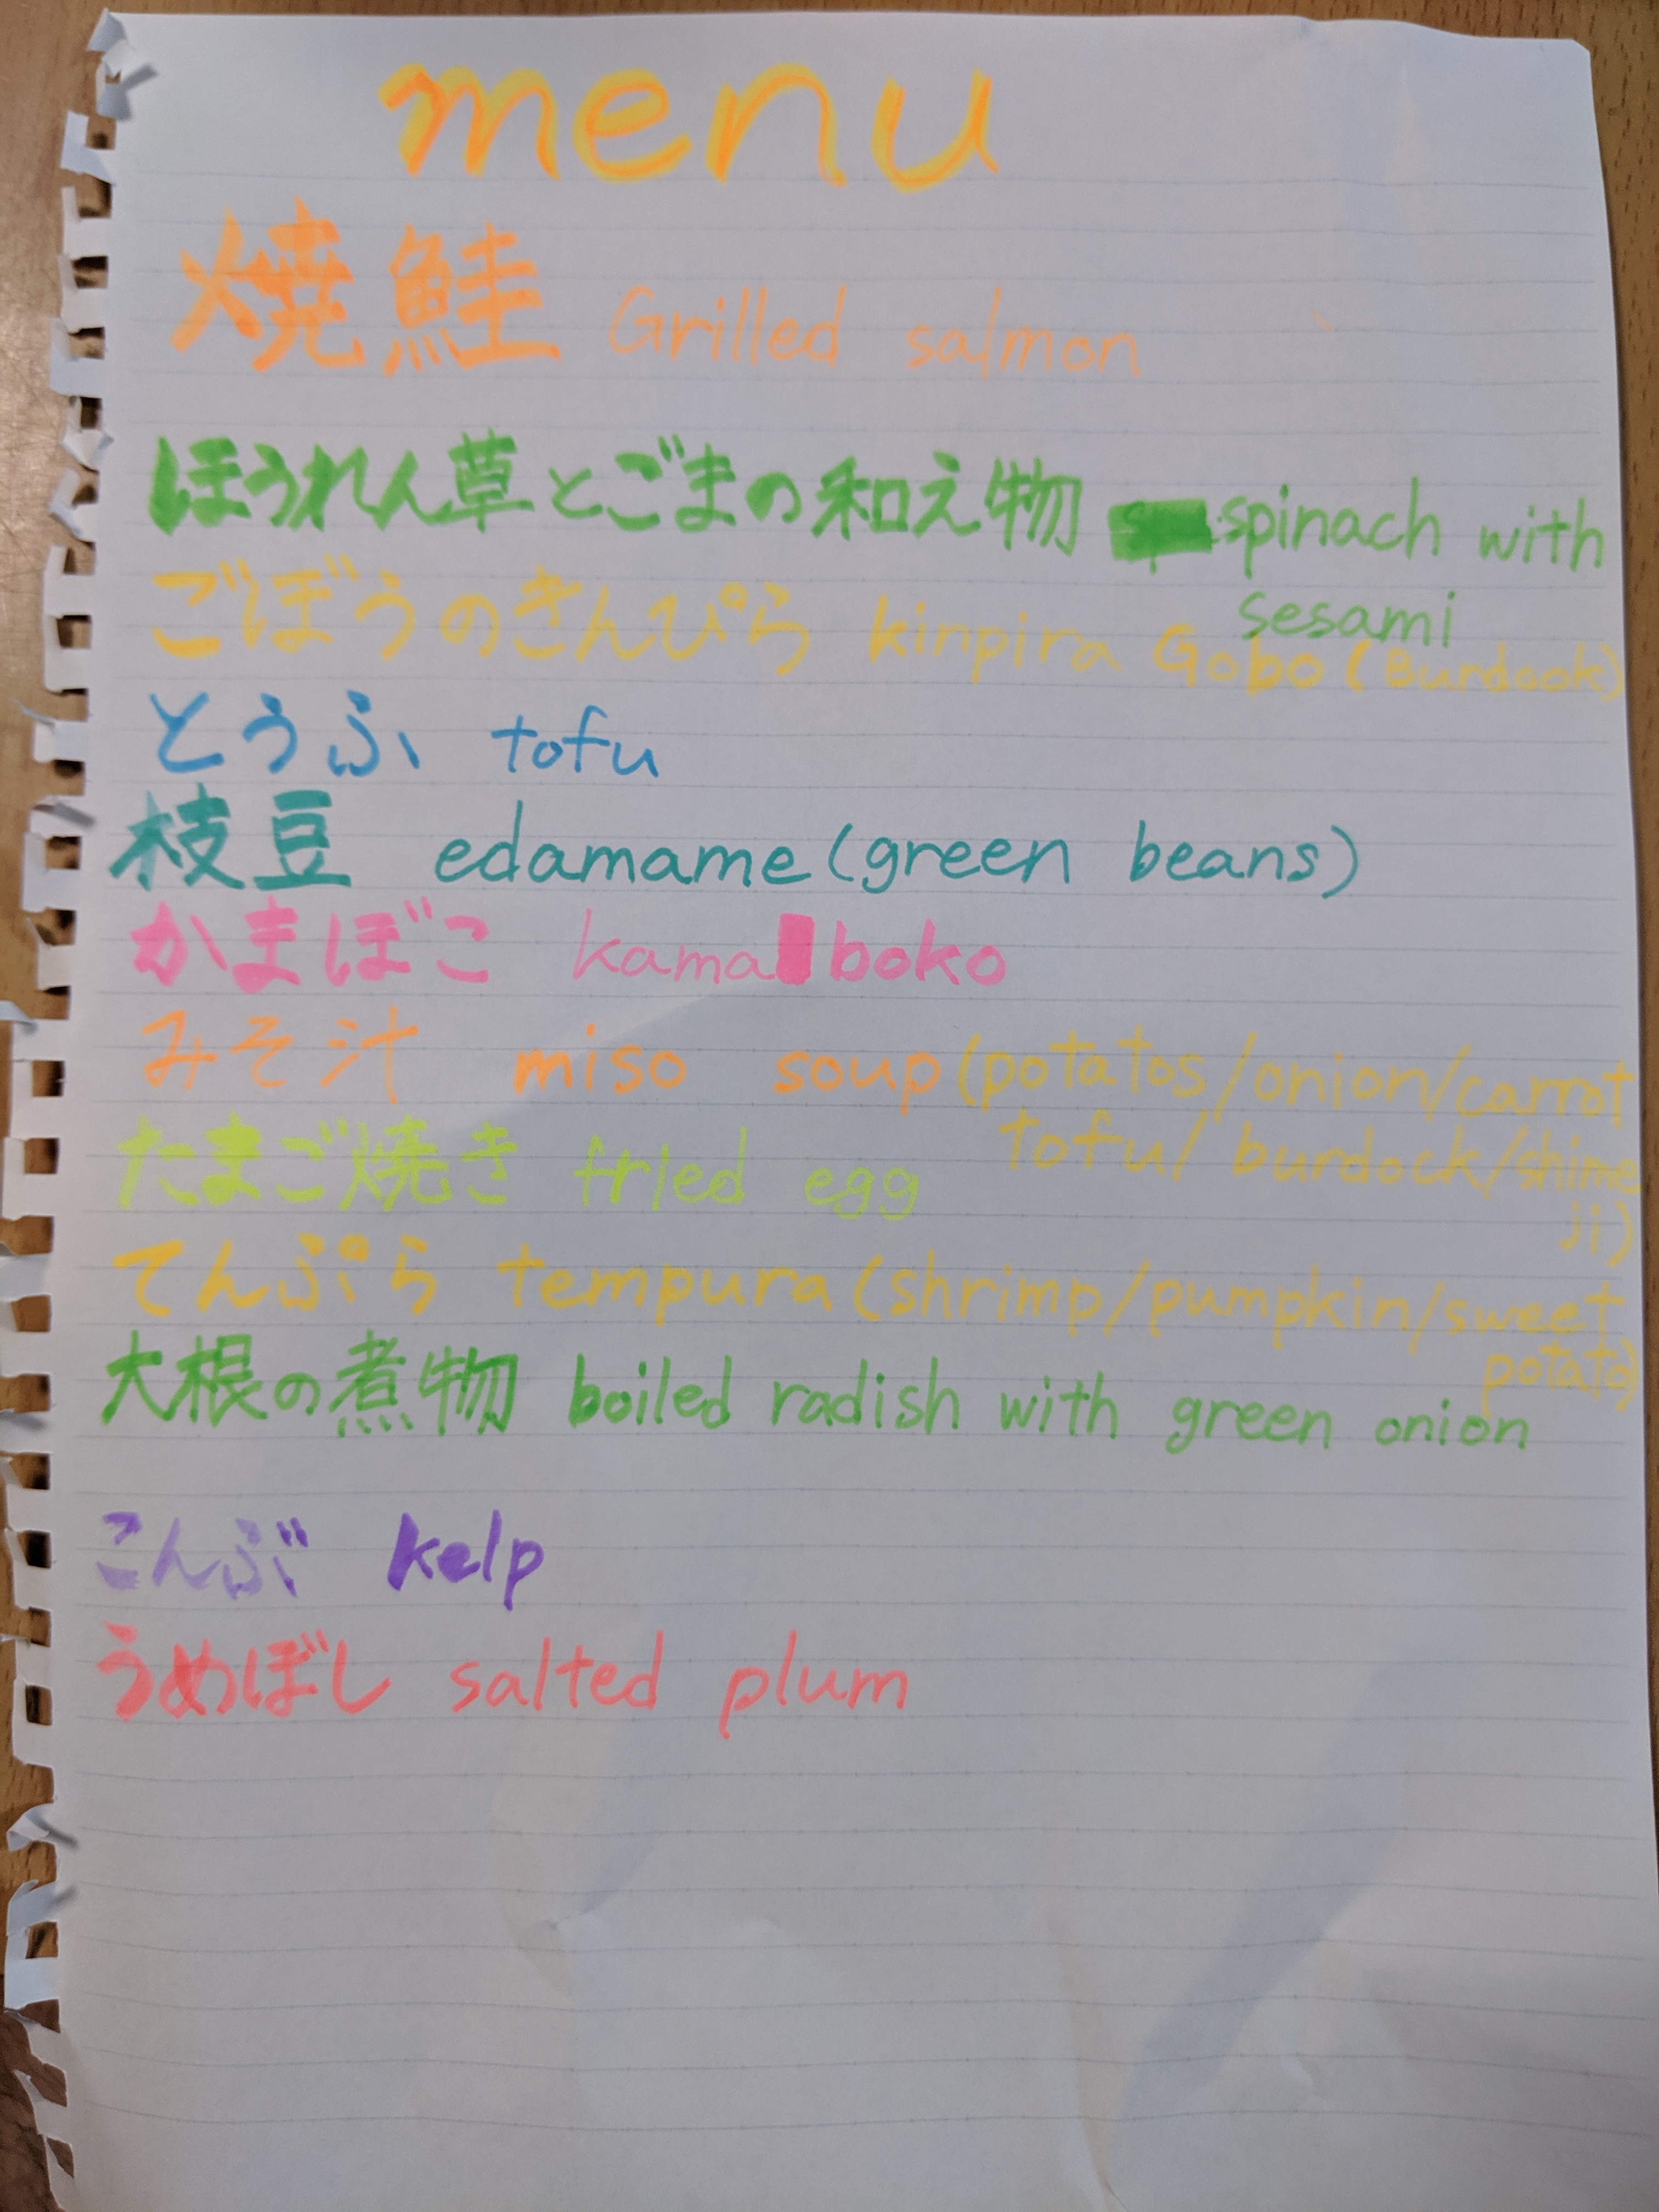 menu
焼鮭 Grilled salmon
ほうれん草とごまの和え物 spinach with
sesami
ごぼうのきんぴら kinpira Gobo (Burdook)
とうふ tofu
枝豆 edamame (green beans)
かまぼこ kamaboko
みそ汁 miso soup (potatos/onion/carrot
tofu/burdock/shime
ji)
たまご焼き fried egg
てんぷら tempura (shrimp/pumpkin/sweet
potato)
大根の煮物 boiled radish with green onion
こんぶ kelp
うめぼし salted plum